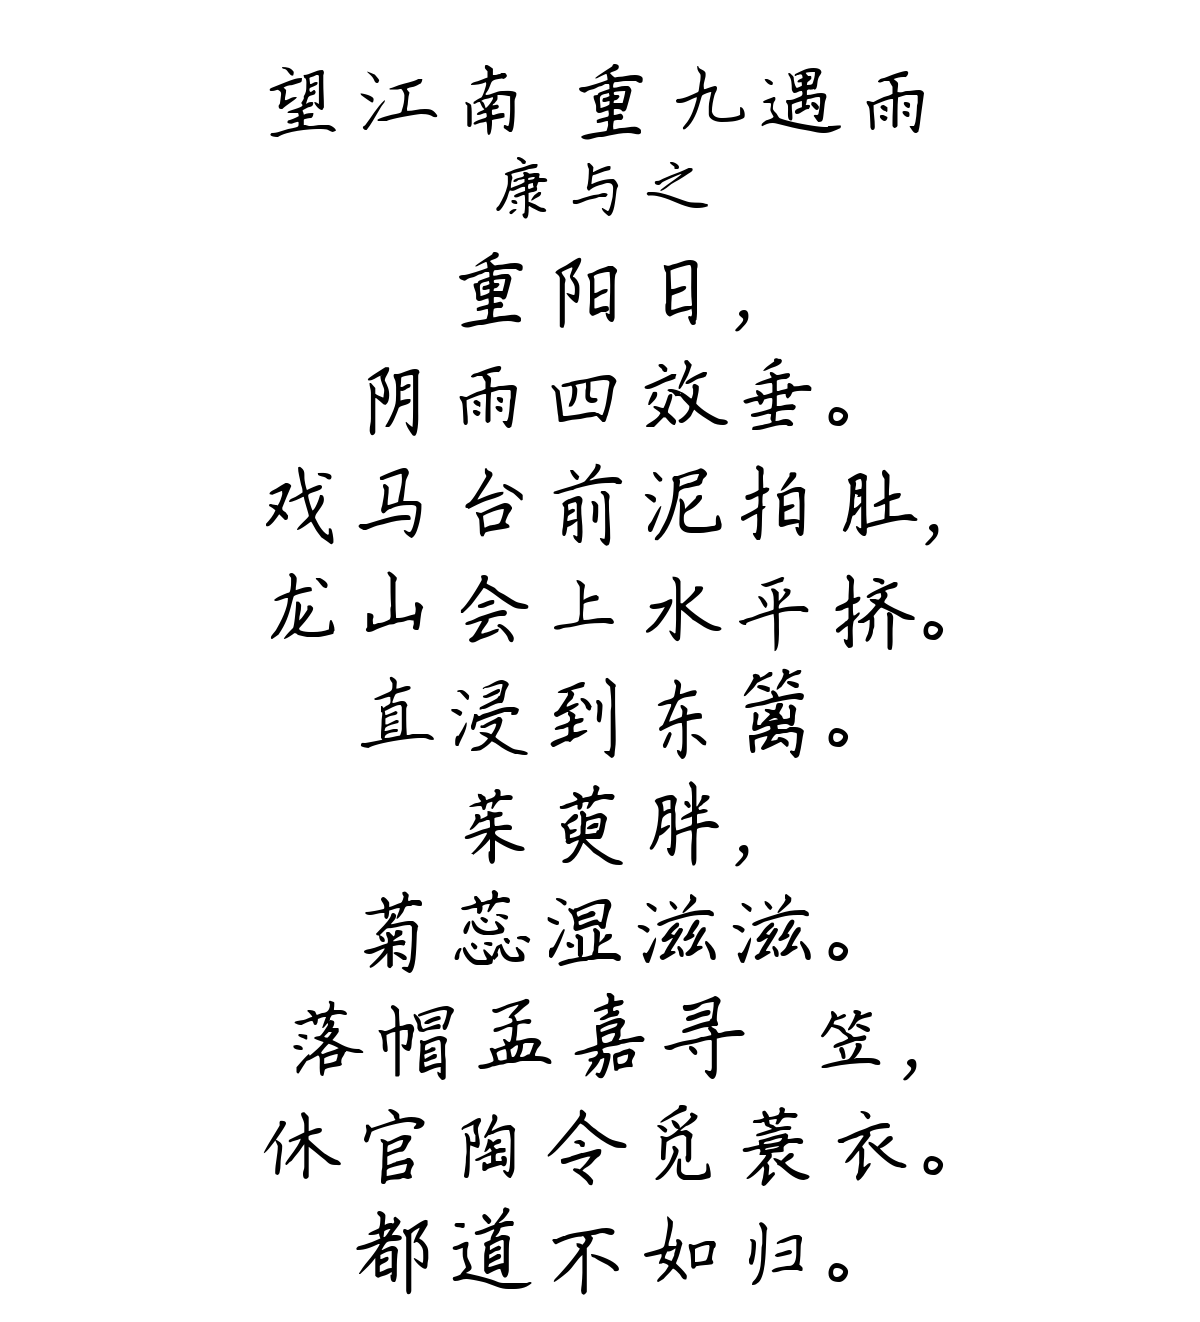 望江南 重九遇雨
康与之
重阳日,
阴雨四效垂。
戏马台前泥拍肚,
龙山会上水平挤。
直浸到东篱。
茱萸胖,
菊蕊湿滋滋。
落帽孟嘉寻 笠,
休官陶令觅蓑衣。
都道不如归。